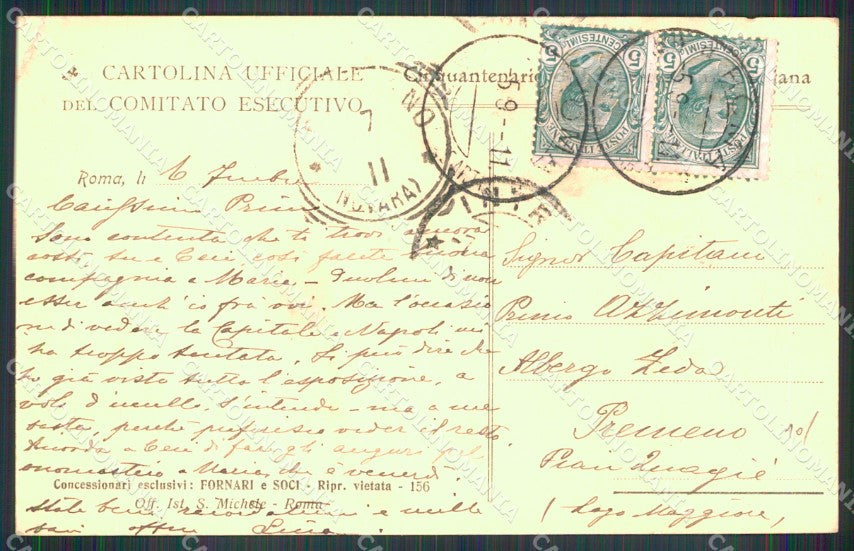 CARTOLINA UFFICIALE
DEL COMITATO ESECUTIVO
Cinquantenario
5 CENTESIMI
5 CENTESIMI
POSTE ITALIANE
5-9-11
11
NOVARA)
Roma, li 6
Carissimo Primo
Sono contenta che ti trovi ancora
costì, tu e Ceci, così farete buona
compagnia a Maria - Duolmi di non
esser anch'io fra voi. Ma l'occasio
ne di vedere la Capitale e Napoli mi
ha troppo tentata. Si può dire che
ho già visto tutto l'esposizione, a
volo d'uccello, s'intende - ma a me
basta, perchè preferisco veder il resto.
Ricorda a Ceci di fare gli auguri pel
onomastico a Maria, che è venerdì
Concessionari esclusivi: FORNARI e SOCI - Ripr. vietata - 156
Off. Ist. S. Michele - Roma
State bene e mille
baci
Signor Capitani
Primo Azzimonti
Albergo Leda
Premeno
Pian Nagié
(Lago Maggiore)
CARTOLINOMANIA